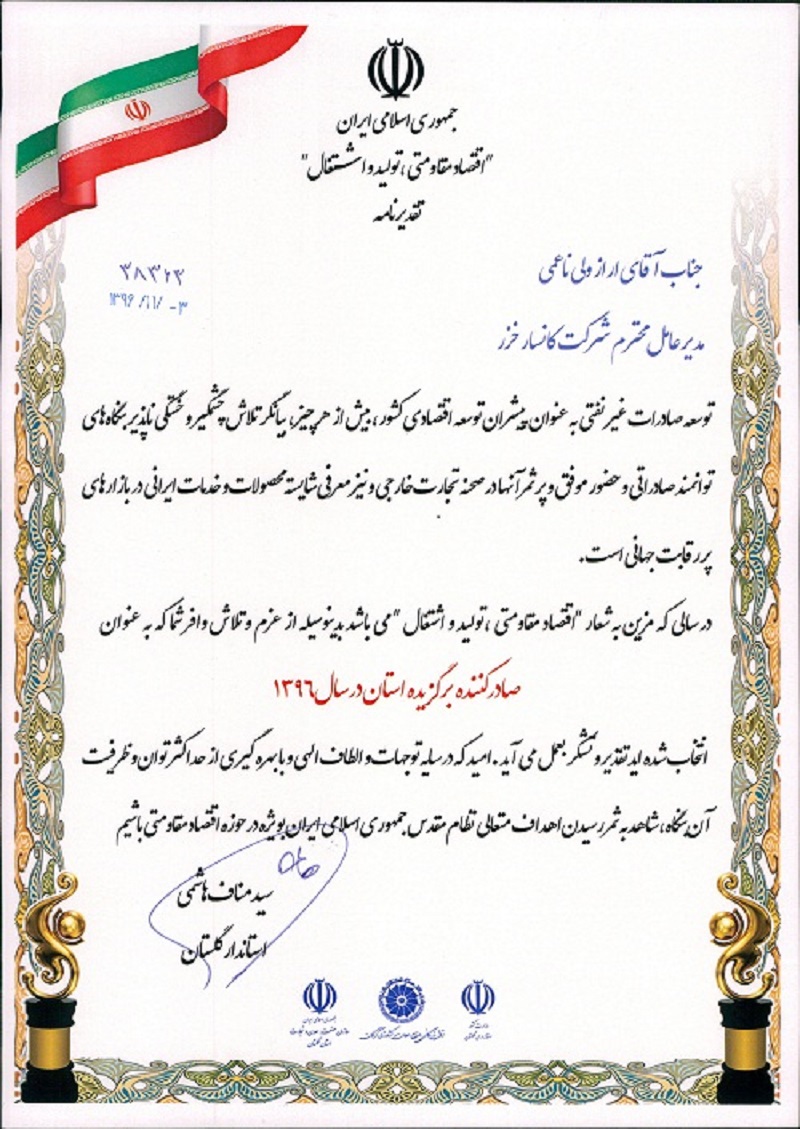 جمهوری اسلامی ایران
"اقتصاد مقاومتی ، تولید و اشتغال"
تقدیرنامه
۳۸۳۲۳
۱۳۹۶/۱۱/۰۳
جناب آقای اراز ولی ناعمی
مدیر عامل محترم شرکت کانسار خزر
توسعه صادرات غیر نفتی به عنوان پیشران توسعه اقتصادی کشور ، بیش از هر چیز، بیانگر تلاش چشمگیر و خستگی ناپذیر بنگاه های
توانمند صادراتی و حضور موفق و پر ثمر آنها در صحنه تجارت خارجی و نیز معرفی شایسته محصولات و خدمات ایرانی در بازار های
پر رقابت جهانی است.
در سالی که مزین به شعار "اقتصاد مقاومتی ، تولید و اشتغال" می باشد بدینوسیله از عزم و تلاش وافر شما که به عنوان
صادر کننده برگزیده استان در سال ۱۳۹۶
انتخاب شده اید تقدیر و تشکر بعمل می آید . امید که در سایه توجهات و الطاف الهی و با بهره گیری از حداکثر توان و ظرفیت
آن بنگاه ، شاهد به ثمر رسیدن اهداف متعالی نظام مقدس جمهوری اسلامی ایران بویژه در حوزه اقتصاد مقاومتی باشیم
سید مناف هاشمی
استاندار گلستان